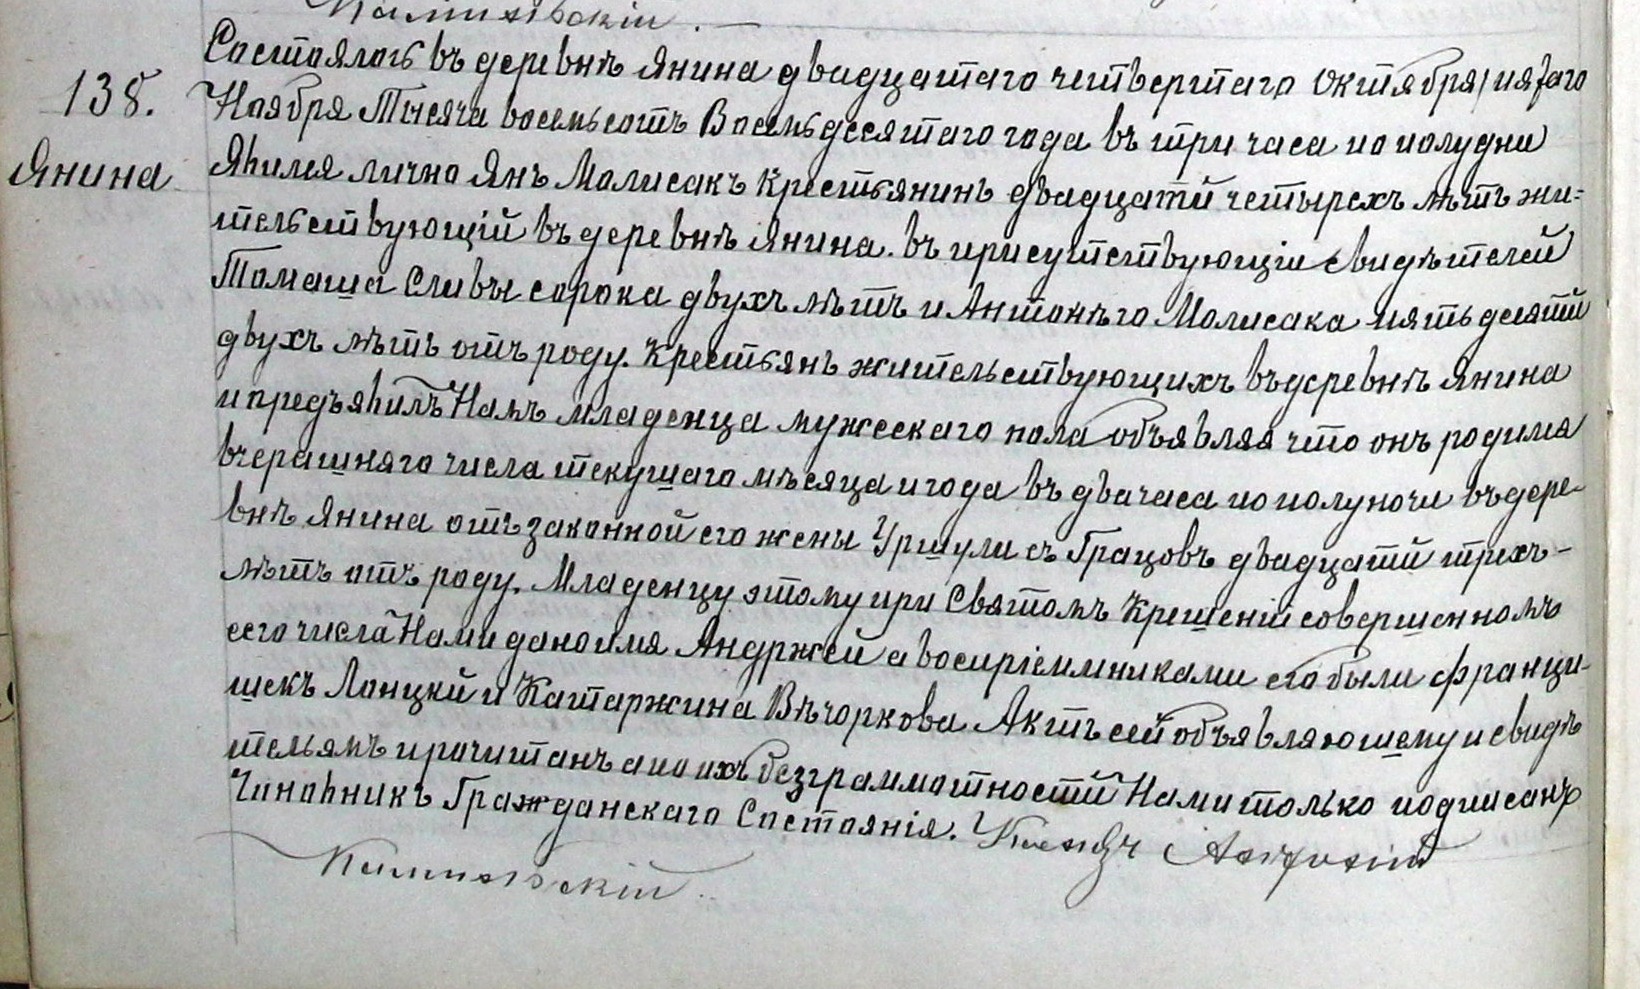 Калиновскій.
138.
Янина
Состоялось въ деревнѣ Янина двадцатаго четвертаго Октября/пятаго
Ноября Тысяча восемьсотъ Восемьдесятаго года въ три часа по полудни
Явился лично Янъ Малисакъ Крестьянинъ двадцати четырехъ лѣтъ жи=
тельствующій въ деревнѣ Янина. въ присутствующіи свидѣтелей
Томаша Сливы сорока двухъ лѣтъ и Антонѣго Малисака пятьдесяти
двухъ лѣтъ отъ роду. Крестьянъ жительствующихъ въ деревнѣ Янина
и предъявилъ Намъ младенца мужескаго пола объявляя что онъ родился
вчерашняго числа текущаго мѣсяца и года въ два часа по полуночи въ дере-
внѣ Янина отъ законной его жены Уршули съ Грацовъ двадцати трехъ -
лѣтъ отъ роду. Младенцу этому при Святомъ Крещеніи совершенномъ
сего числа Нами дано имя Андржей а воспріемниками его были Францы-
шекъ Лонцкй и Катаржина Вѣчоркова Актъ сей объявляющему и свидѣ
тельямъ прочитанъ а по ихъ безграммотности Нами только подписанъ
Чиновникъ Гражданскаго Состоянія. Ксендзъ
Калиновскій.